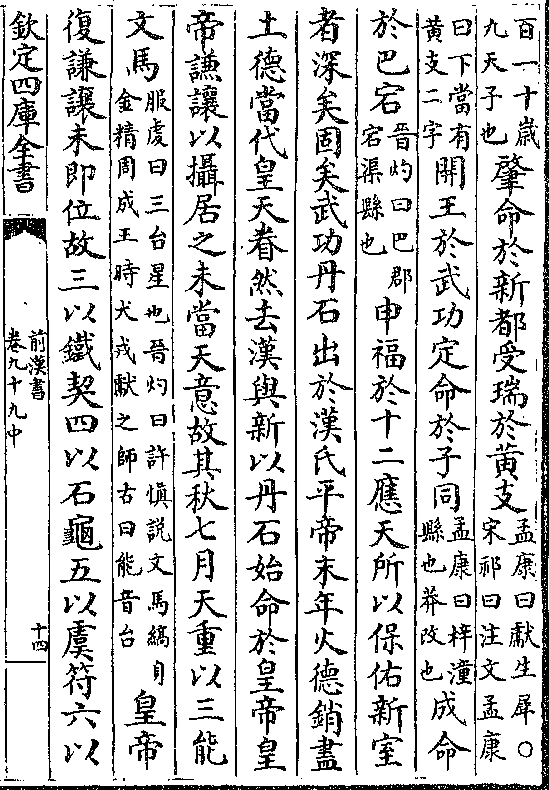 百一十歲
九天子也
肇命於新都受瑞於黄支
孟康曰獻生犀○
宋祁曰注文孟康
曰下當有
黄支二字
開王於武功定命於子同
孟康曰梓潼
縣也莽改也
成命
於巴宕
晉灼曰巴郡
宕渠縣也
申福於十二應天所以保佑新室
者深矣固矣武功丹石出於漢氏平帝末年火德銷盡
土德當代皇天眷然去漢與新以丹石始命於皇帝皇
帝謙讓以攝居之未當天意故其秋七月天重以三能
文馬
服虔曰三台星也晉灼曰許慎説文馬縞身
金精周成王時犬戎獻之師古曰能音台
皇帝
復謙讓未即位故三以鐵契四以石龜五以虞符六以
欽定四庫全書
前漢書
卷九十九中
十四